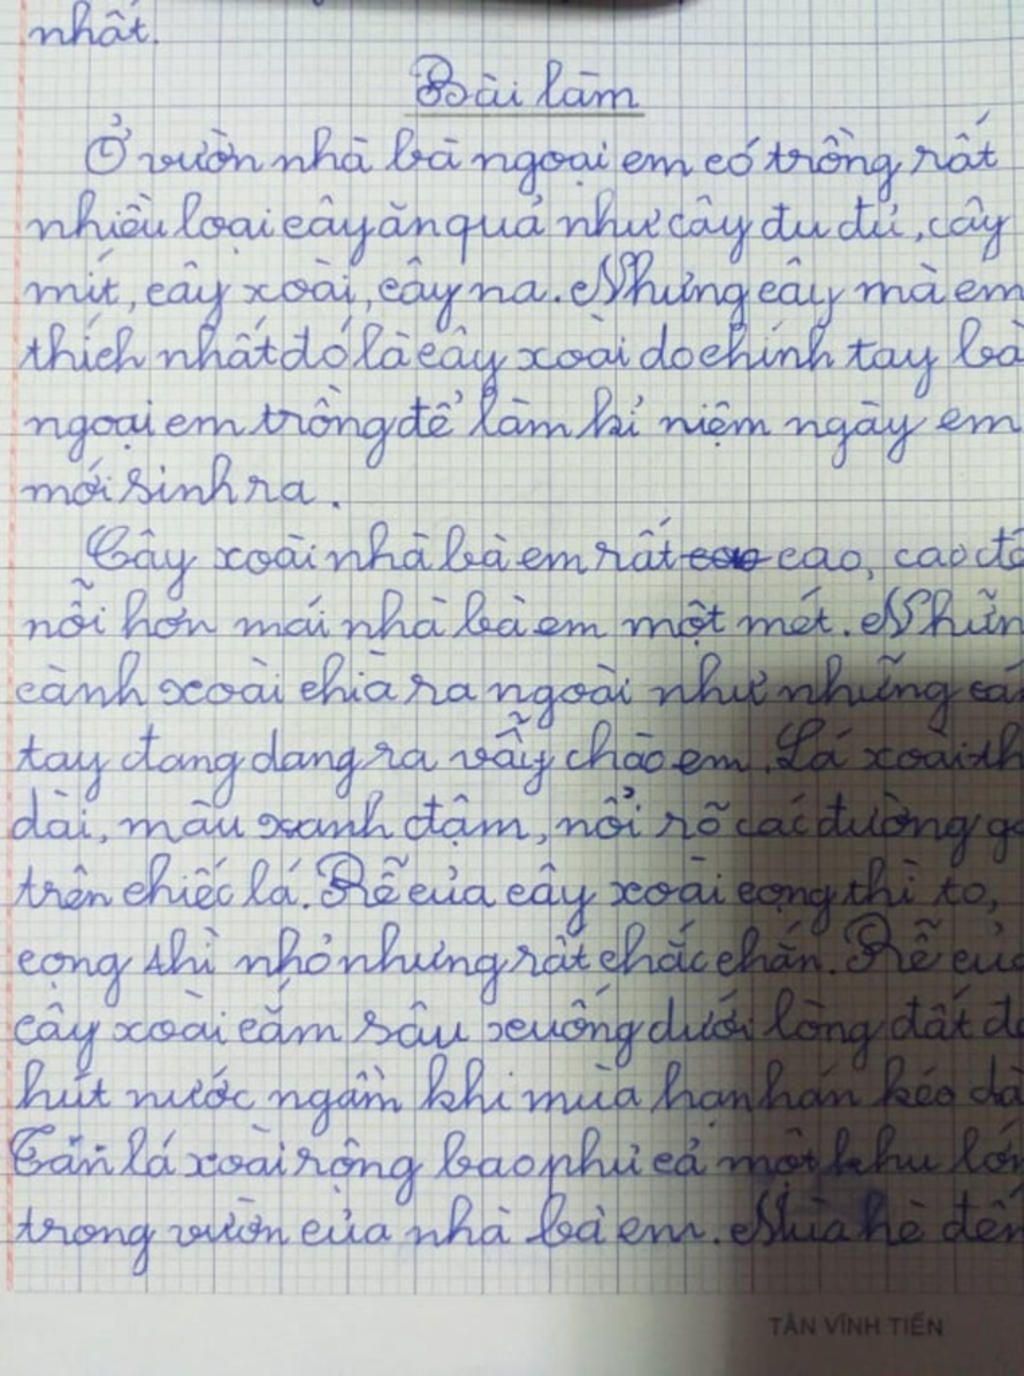 nhất.
Bài làm
Ở vườn nhà bà ngoại em có trồng rất
nhiều loại cây ăn quả như cây đu đủ, cây
mít, cây xoài, cây na. Nhưng cây mà em
thích nhất đó là cây xoài do chính tay bà
ngoại em trồng để làm kỉ niệm ngày em
mới sinh ra.
Cây xoài nhà bà em rất cao, cao
nỗi hơn mái nhà bà em một mét.
cành xoài chìa ra ngoài như những
tay đang dang ra vẫy chào em. Lá xoài
dài, màu xanh đậm, nổi rõ các đường
trên chiếc lá. Rễ của cây xoài cọng thì to,
cọng thì nhỏ nhưng rất chắc chắn. Rễ
cây xoài cắm sâu xuống dưới lòng đất
hút nước ngầm khi mùa hạn hán kéo
lá xoài rộng bao phủ cả một khu
trong vườn của nhà bà em. Mùa hè
TÂN VĨNH TIẾN